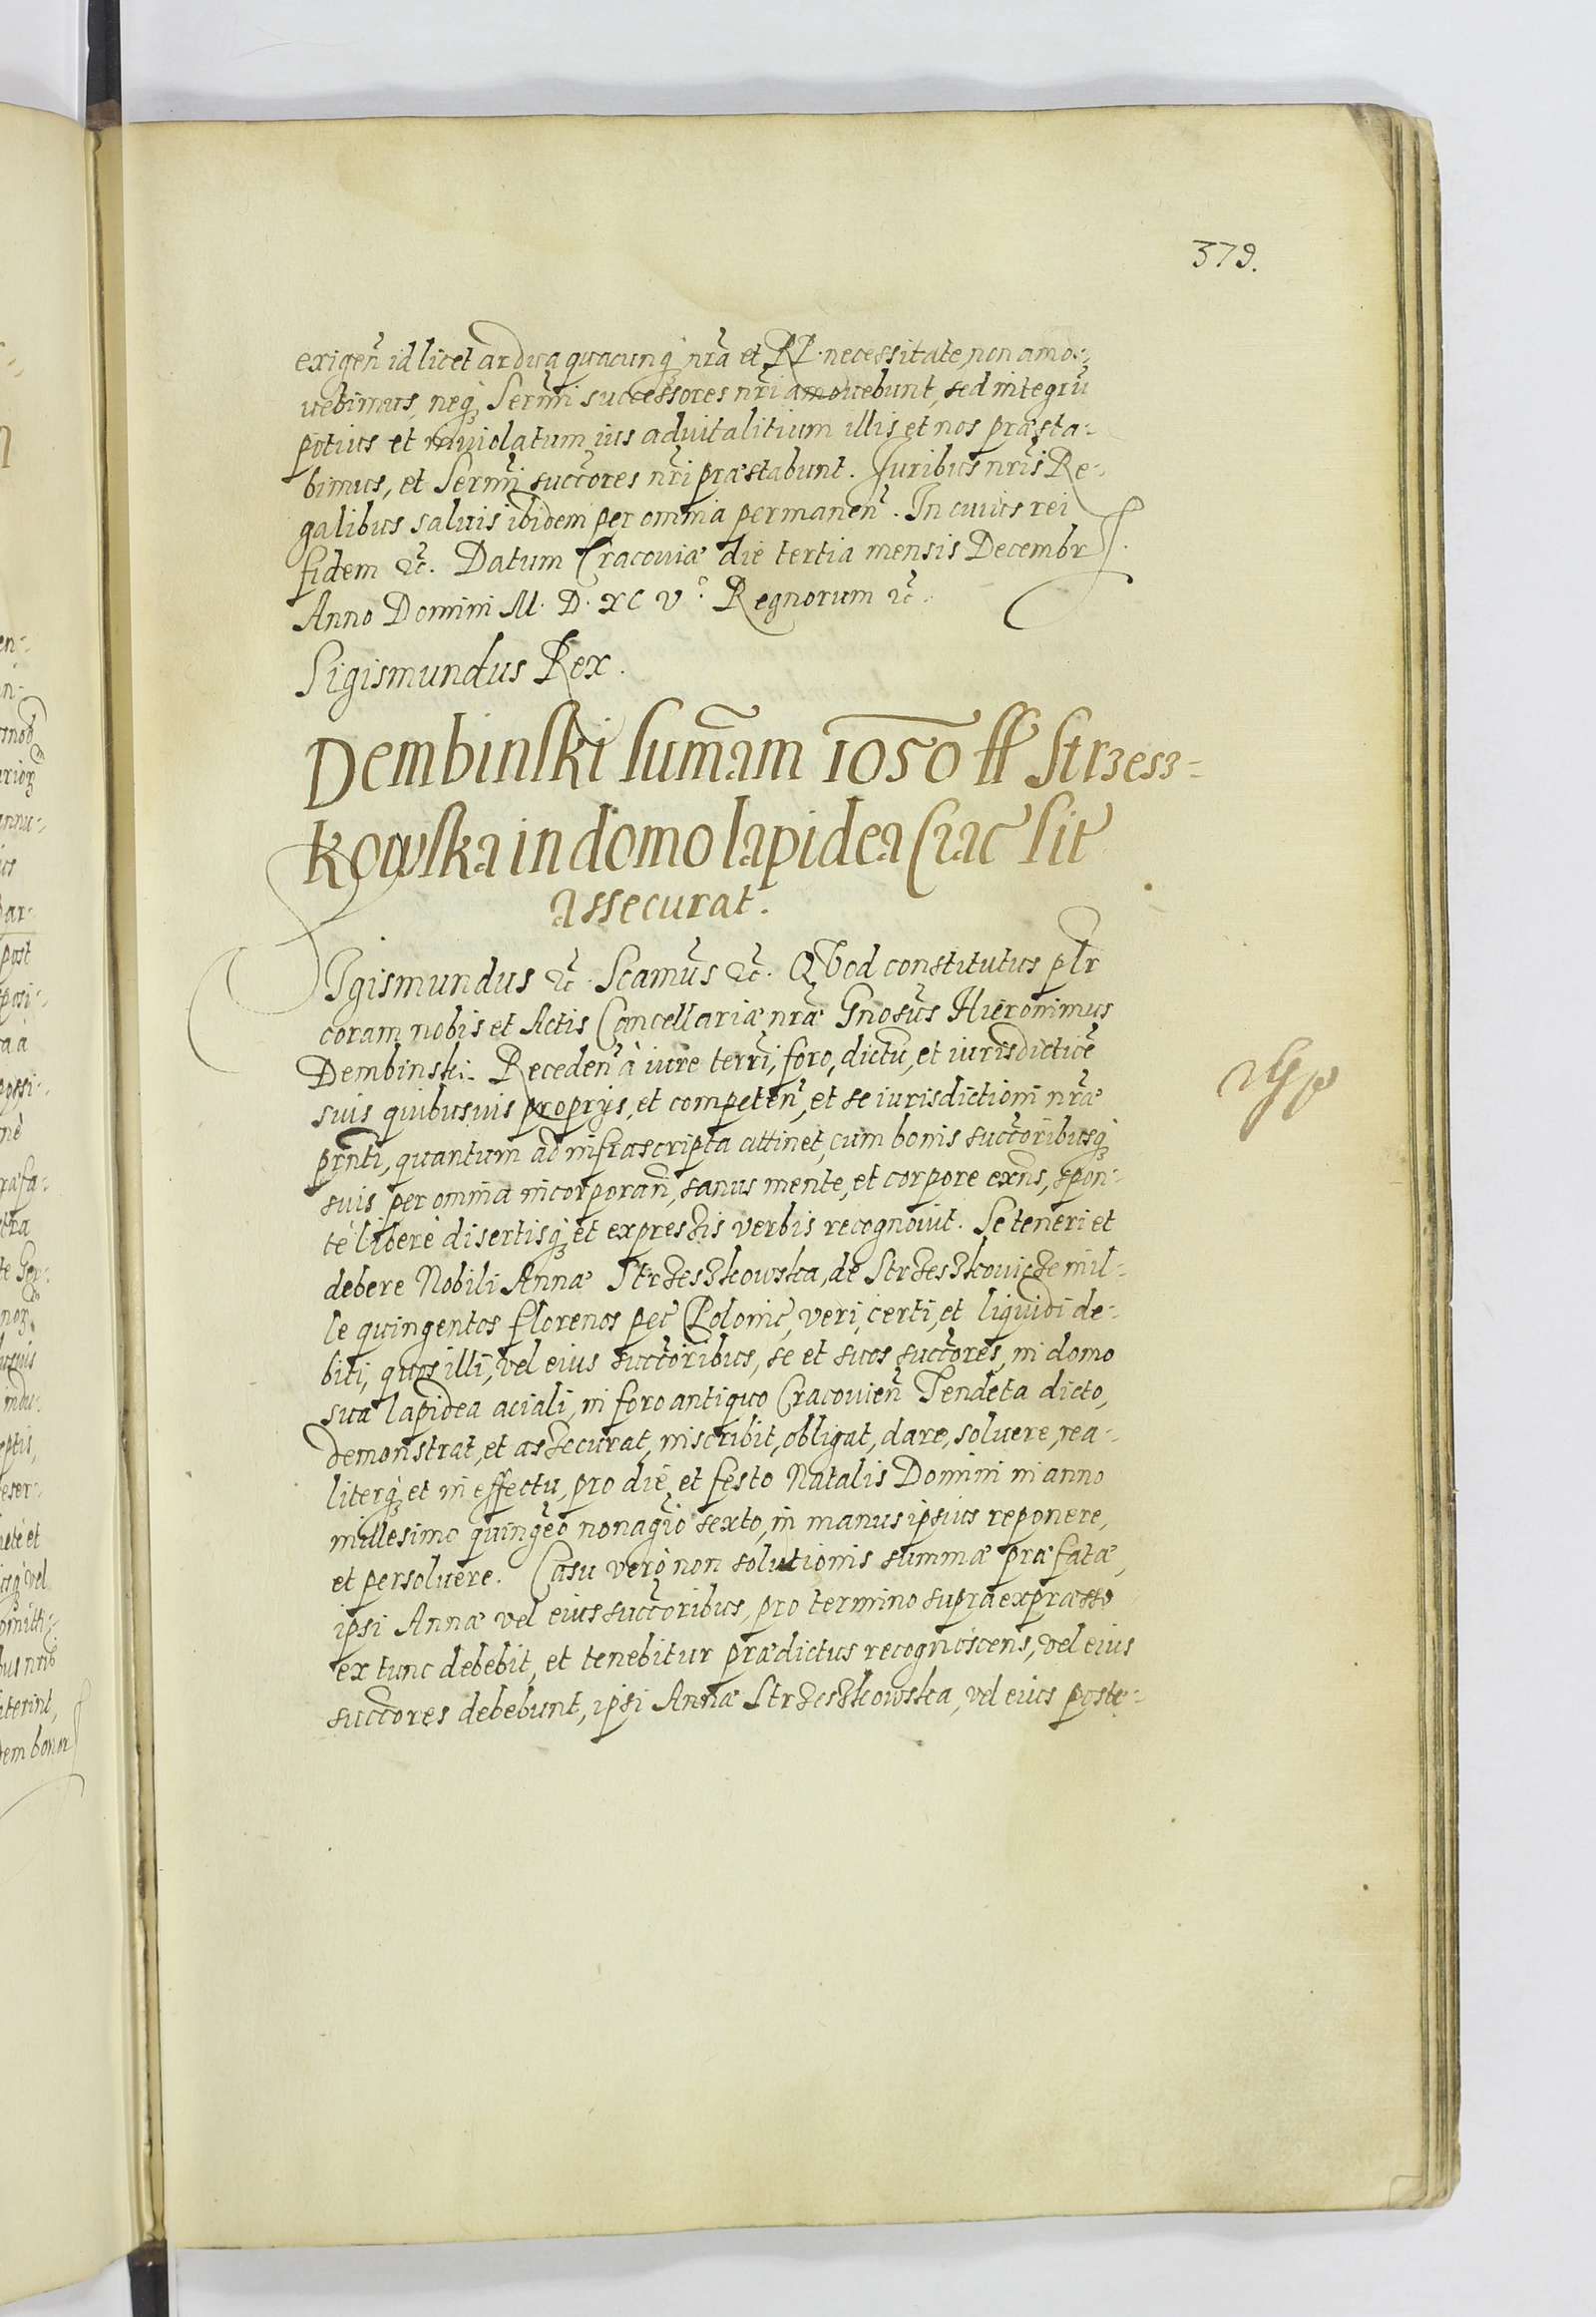 379.
exigen̄ id licet ardua quacunq̨ nr̄a et RP. necessitate, non amo-
uebimus, neq̨ Sermi successores nr̄i amouebunt, sed integrū
potius et inuiolatum ius aduitalitium illis et nos præsta-
bimus, et Sermi succ̄ores nr̄i præstabunt. Juribus nr̄is Re-
galibus saluis ibidem per omnia permanen̄. In cuius rei
fidem ⁊c̄. Datum Cracouiæ die tertia mensis Decembr
Anno Domini M. D. XC V°. Regnorum ⁊c̄.
Sigismundus Rex.
Dembinski sum̄am 1050 ff Strzesz-
kowska in domo lapidea Crac̄ sit
assecurat.
SIgismundus ⁊c̄. Scamūs ⁊c̄. QVod constitutus plr
coram nobis et Actis Cancellariæ nr̄æ Gnosūs Hieronimus
Dembinski. Receden̄ à iure terrī, foro, dictū, et iurisdictiōe
suis quibusuis proprijs, et competen̄, et se iurisdictioni nr̄æ
prn̄ti, quantum ad infrascripta attinet, cum bonis succ̄oribusq̨
suis per omnia incorporan̄, sanus mente, et corpore exn̄s, spon-
tè liberè disertisq̨ et expressis verbis recognouit. Se teneri et
debere Nobili Annæ Strzeszkowska, de Strzeszkowicze mil-
le quingentos florenos pec̄ Polonic̄, veri, certi, et liquidi de-
biti, quos illi, vel eius succ̄oribus, se et suos succ̄ores, in domo
sua lapidea aciali, in foro antiquo Cracouien̄ Tendeta dicto,
demonstrat, et assecurat, inscribit, obligat, dare, soluere, rea-
literq̨ et in effectu, pro die et festo Natalis Domini in anno
millesimo quingēo nonagīo sexto, in manus ipsius reponere,
et persoluere. Casu verò non solutionis summæ præfatæ,
ipsi Annæ vel eius succ̄oribus, pro termino supraexpræsso
ex tunc debebit, et tenebitur prædictus recognoscens, vel eius
succ̄ores debebunt, ipsi Annæ Strzeszkowska, vel eius poste-